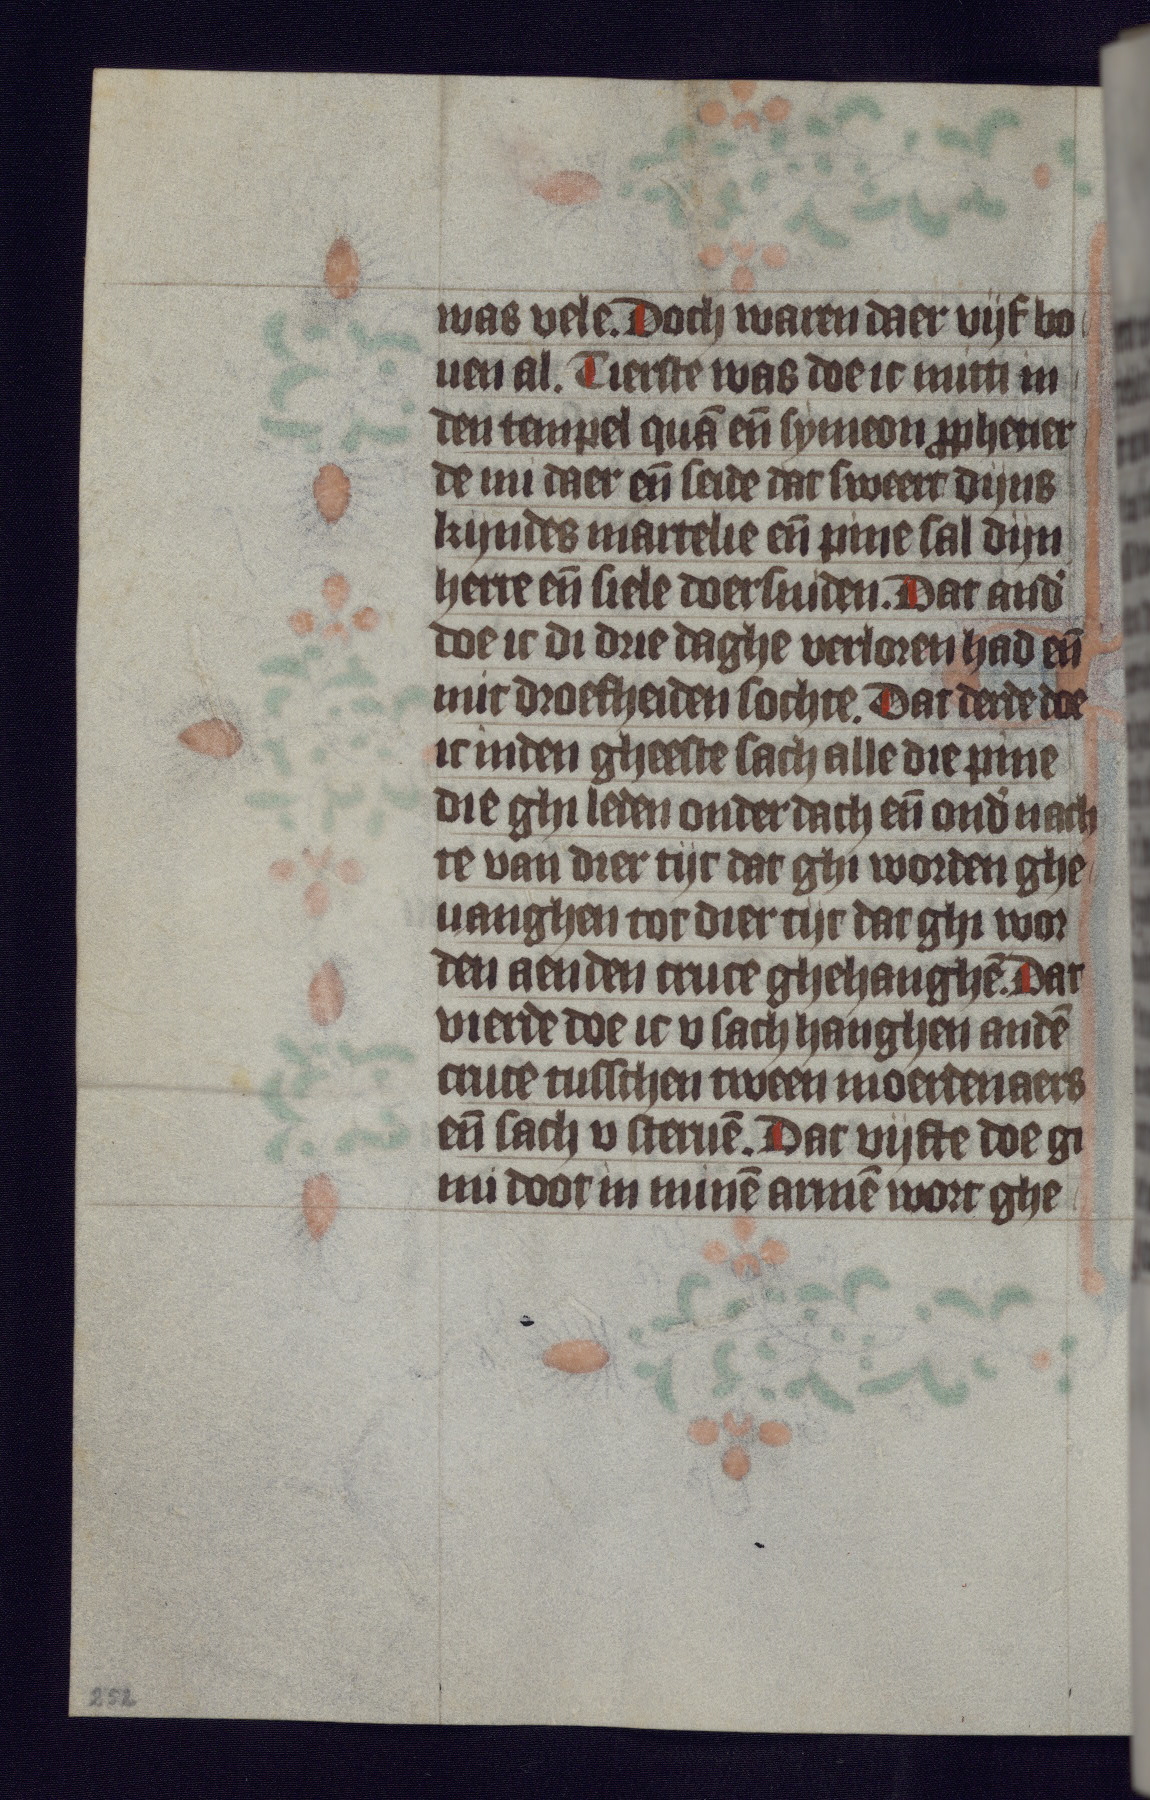 was vele. Doch waren daer vijf bo
uen al. Tierste was doe ic mitti in
den tempel quā eñ symeon ꝓpheteer
de mi daer eñ seide dat sweert dijns
kijndes martelie eñ pine sal dijn
herte eñ siele doersniden. Dat and᾽
doe ic di drie daghe verloren had eñ
mit droefheiden sochte. Dat derde doe
ic inden gheeste sach alle die pine
die ghi leden onder dach eñ ond᾽ nach
te van dier tijt dat ghi worden ghe
uanghen tot dier tijt dat ghi wor
den aenden cruce ghehanghē. Dat
vierde doe ic v sach hanghen andē
cruce tusschen tween moerdenaers
eñ sach v steruē. Dat vijfte doe gi
mi doot in minē armē wort ghe
252